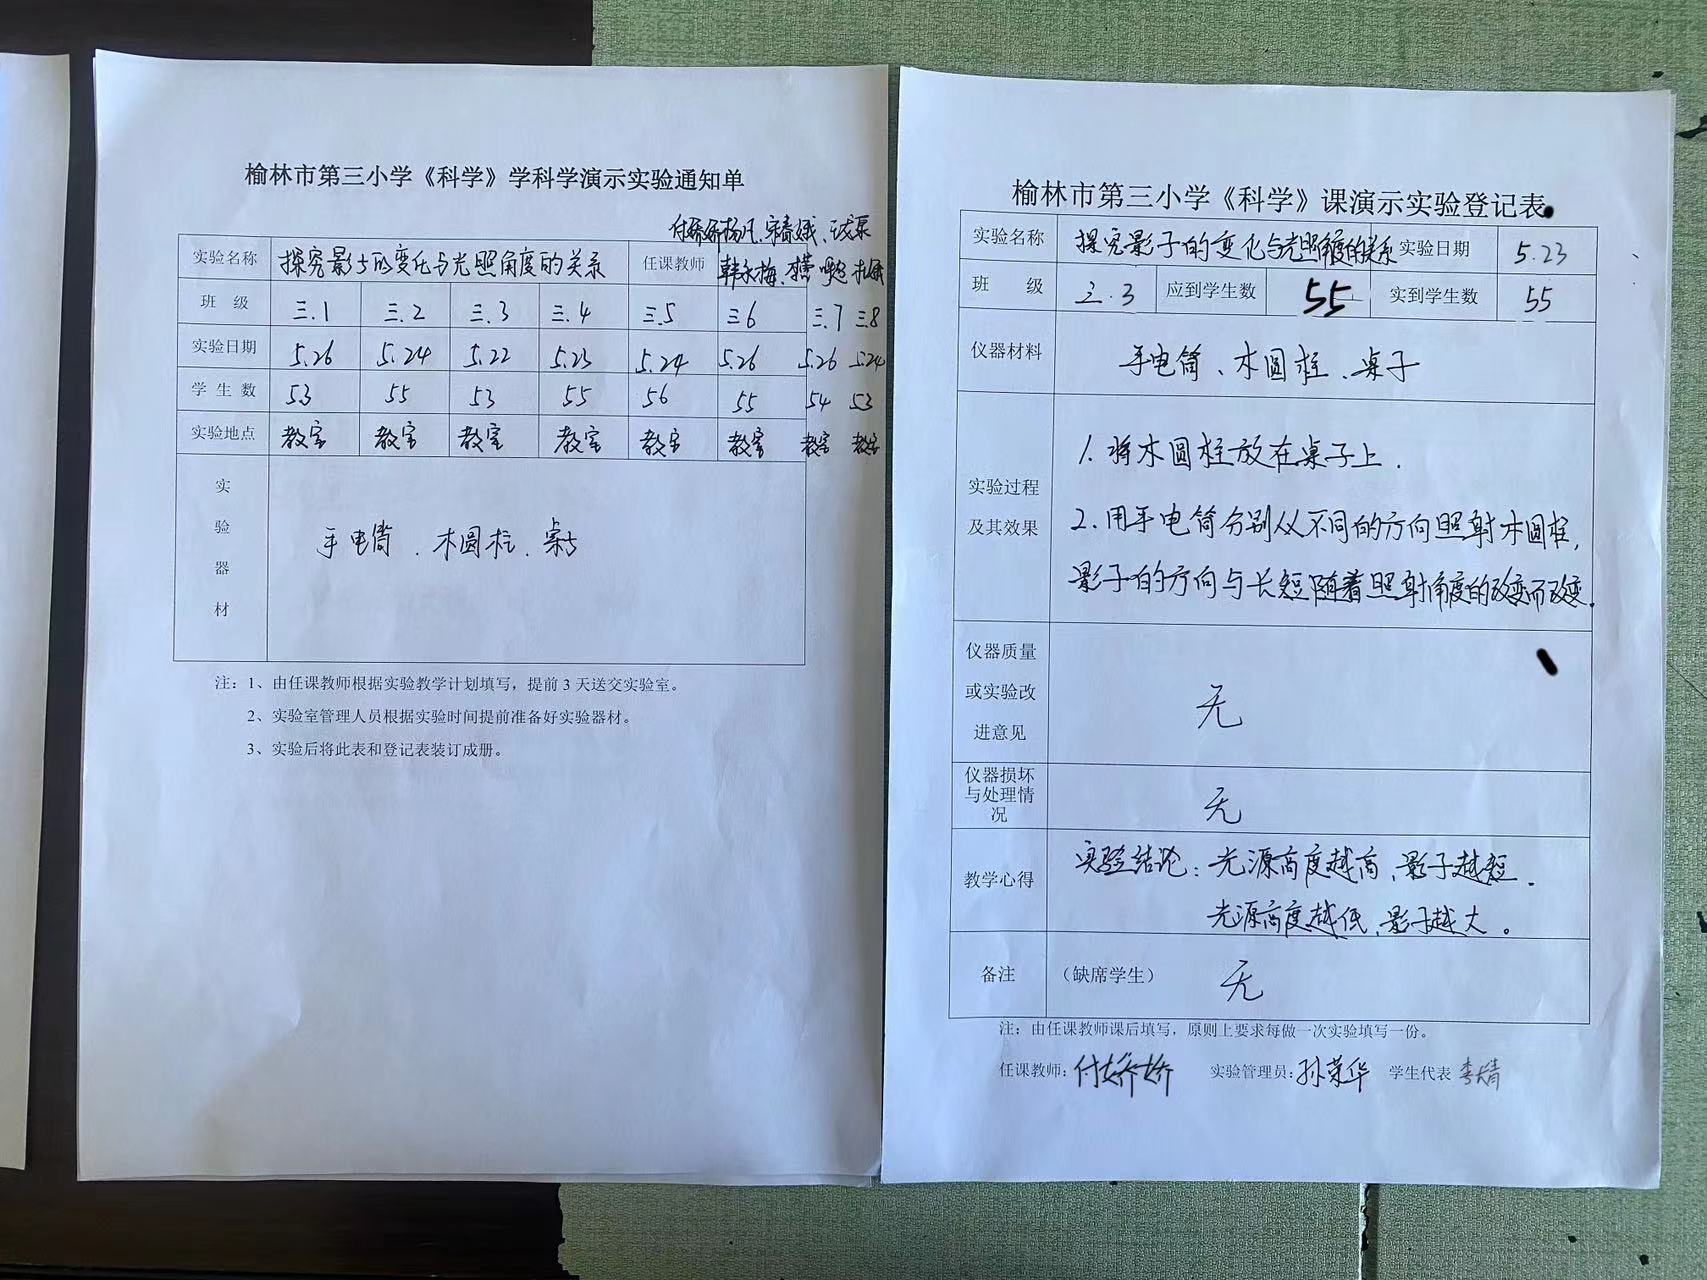 榆林市第三小学《科学》学科学演示实验通知单
付娇娇 杨凡、宋春娥、
实验名称 探究影子的变化与光照角度的关系 任课教师 韩永梅、
班 级 三.1 三.2 三.3 三.4 三.5 三6 三.7 三.8
实验日期 5.26 5.24 5.22 5.23 5.24 5.26 5.26 5.24
学 生 数 53 55 53 55 56 55 54 53
实验地点 教室 教室 教室 教室 教室 教室 教室 教室
实
验
器
材
手电筒、木圆柱、桌子
注：1、由任课教师根据实验教学计划填写，提前 3 天送交实验室。
2、实验室管理人员根据实验时间提前准备好实验器材。
3、实验后将此表和登记表装订成册。
榆林市第三小学《科学》课演示实验登记表
实验名称 探究影子的变化与光照角度的关系 实验日期 5.23
班 级 三.3 应到学生数 55 实到学生数 55
仪器材料 手电筒、木圆柱、桌子
实验过程
及其效果
1. 将木圆柱放在桌子上.
2. 用手电筒分别从不同的方向照射木圆柱,
影子的方向与长短随着照射角度的改变而改变.
仪器质量
或实验改
进意见
无
仪器损坏
与处理情
况
无
教学心得
实验结论: 光源高度越高,影子越短.
光源高度越低,影子越大。
备注 （缺席学生） 无
注：由任课教师课后填写，原则上要求每做一次实验填写一份。
任课教师: 付娇娇 实验管理员: 孙荣华 学生代表